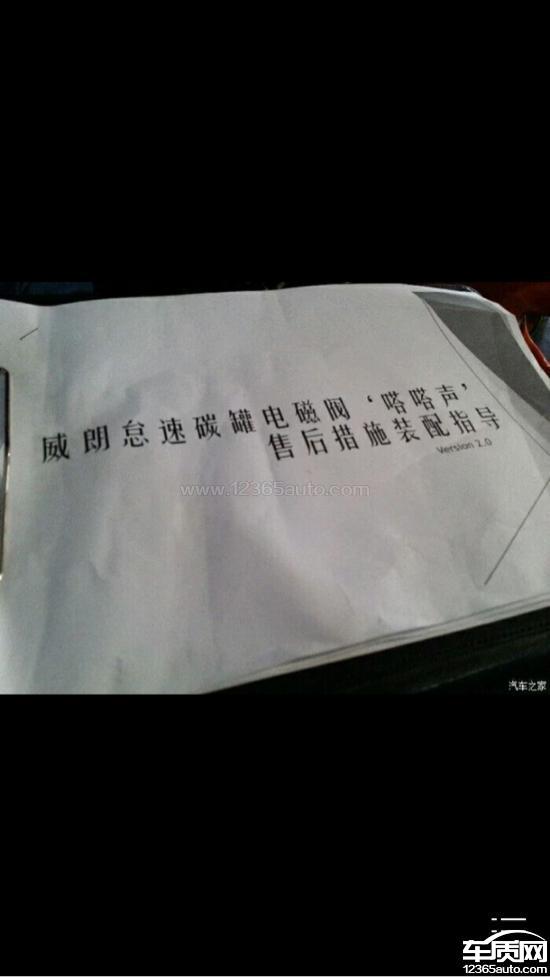 威朗怠速碳罐电磁阀‘嗒嗒声’
售后措施装配指导
Version 2.0
www.12365auto.com
汽车之家
车质网
12365auto.com